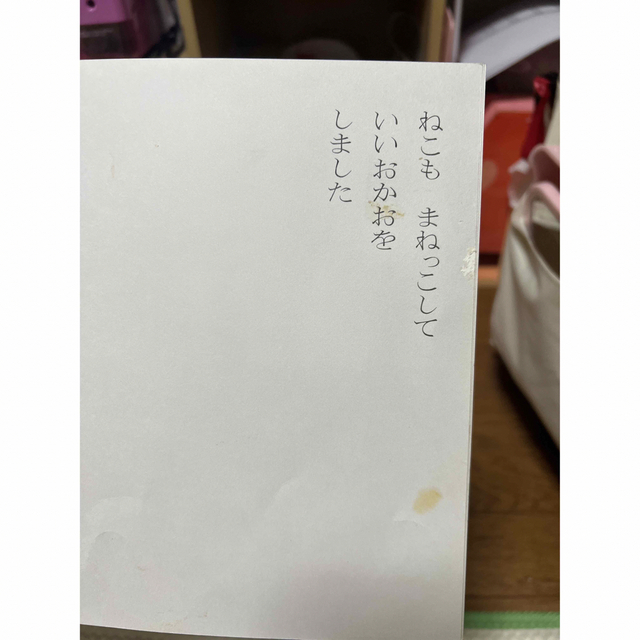 ねこも　まねっこして
いいおかおを
しました